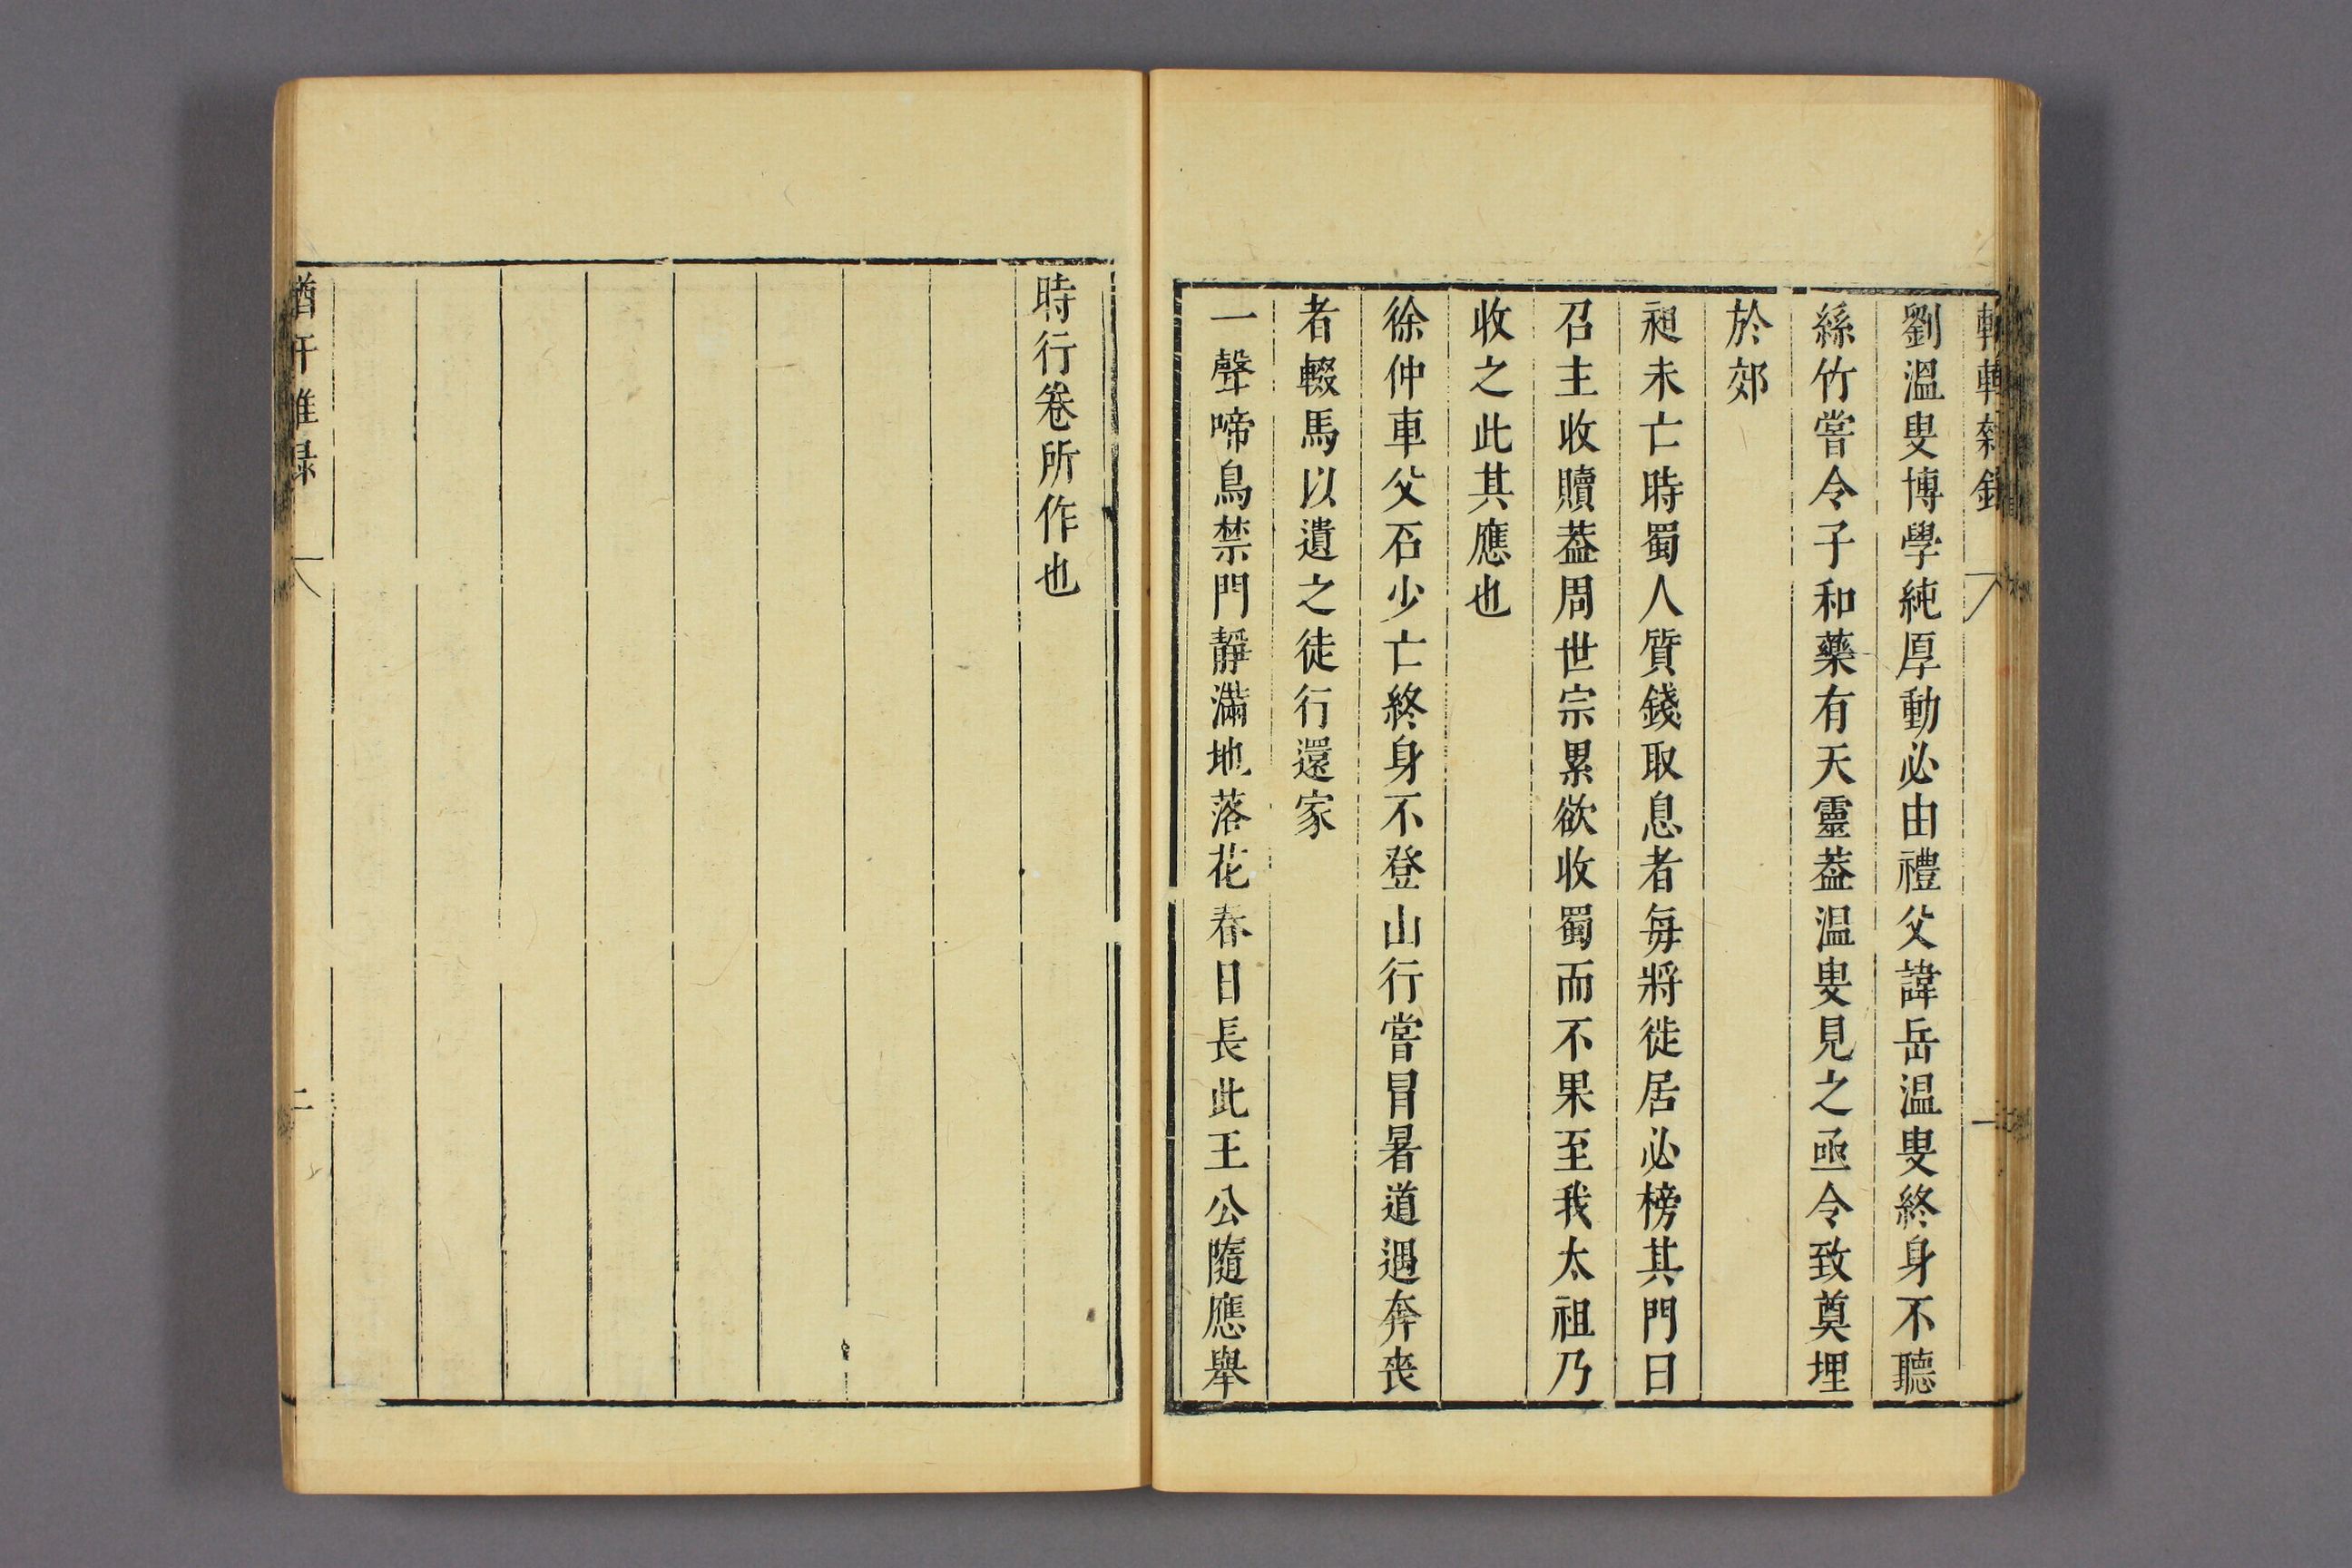 劉溫叟博學純厚動必由禮父諱岳温叟終身不聽
絲竹嘗令子和藥有天靈葢温叟見之亟令致奠埋
於郊
昶未亡時蜀人質錢取息者每將徙居必榜其門曰
召主收贖葢周世宗累欲收蜀而不果至我太祖乃
收之此其應也
徐仲車父石少亡終身不登山行嘗冒暑道遇奔喪
者輟馬以遺之徒行還家
一聲啼鳥禁門靜滿地落花春日長此王公隨應舉
時行卷所作也